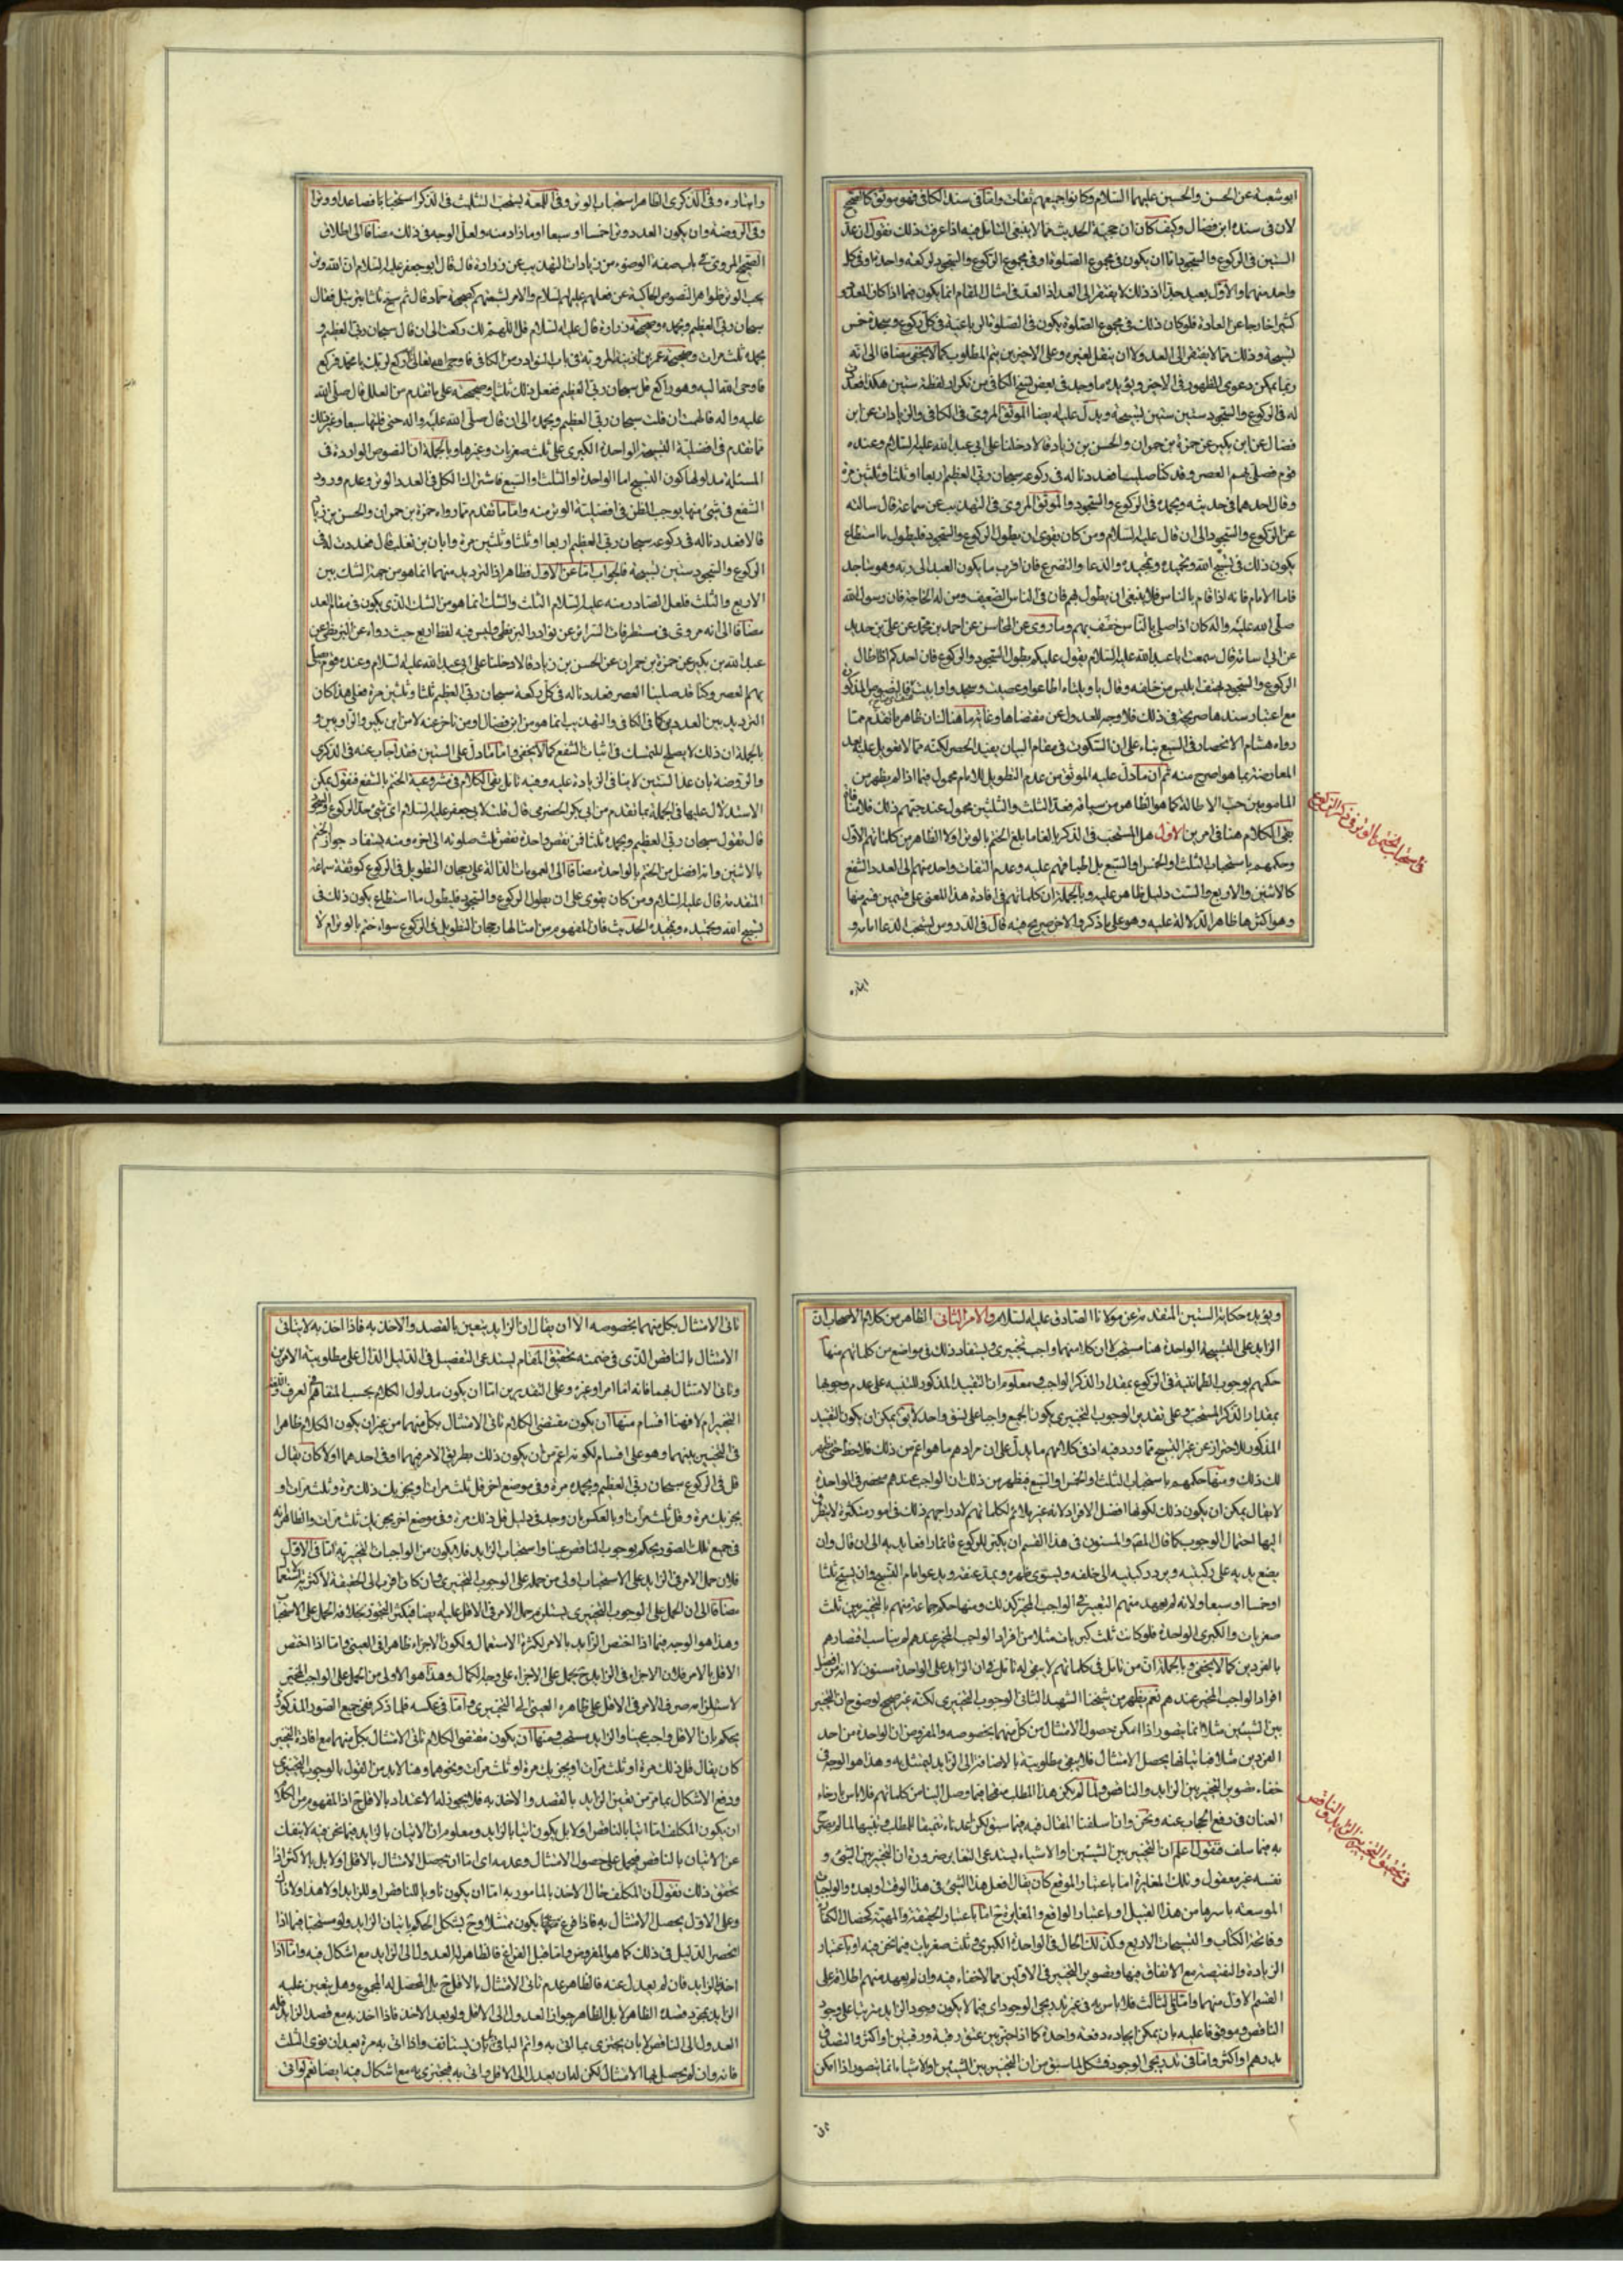 ابو شعبة عن الحسن والحسين عليهما السلام وكانوا جميعهم ثقات واما في سند الكافي فهو موثق كالصحيح
لان في سنده ابن فضال وكيف كان ان حجية الحديث مما لا ينبغي التامل فيه اذا عرفت ذلك نقول ان عد
الستين في الركوع والسجود اما ان يكون في مجموع الصلوة او في مجموع الركوع والسجود لركعة واحدة او في كل
واحد منهما والاول بعيد جدا اذ ذلك لا يفتقر الى العد اذ العد في امثال المقام انما يكون فيما اذا كان المعدود
كثيرا خارجا عن العادة فلو كان ذلك في مجموع الصلوة يكون في الصلوة الرباعية في كل ركوع وسجدة خمس
تسبيحة وذلك مما لا يفتقر الى العد ولا ان ينقل لغيره وعلى الاخيرين يتم المطلوب كما لا يخفى مضافا الى انه
ربما يمكن دعوى الظهور في الاخير ويؤيده ما وجد في بعض نسخ الكافي من تكرار لفظة ستين هكذا فعددت
له في الركوع والسجود ستين ستين تسبيحة ويدل عليه ايضا الموثق المروي في الكافي والزيادات عن ابن
فضال عن ابن بكير عن حمزة بن حمران والحسن بن زياد قالا دخلنا على ابي عبد الله عليه السلام وعنده
قوم فصلى بهم العصر وقد كنا صلينا فعددنا له في ركوعه سبحان ربي العظيم اربعا او ثلثا وثلثين مرة
وقال احدهما في حديثه وبحمده في الركوع والسجود والموثق المروي في التهذيب عن سماعة قال سالته
عن الركوع والسجود الى ان قال عليه السلام ومن كان يقوى ان يطول الركوع والسجود فليطول ما استطاع
يكون ذلك في تسبيح الله وتحميده وتمجيده والدعا والتضرع فان اقرب ما يكون العبد الى ربه وهو ساجد
فاما الامام فانه اذا قام بالناس فلا ينبغي ان يطول بهم فان في الناس الضعيف ومن له الحاجة فان رسول الله
صلى الله عليه واله كان اذا صلى بالناس خفف بهم وما روى عن المحاسن عن احمد بن محمد عن علي بن حديد
عن ابي اسامة قال سمعت ابا عبد الله عليه السلام يقول عليكم بطول السجود والركوع فان احدكم اذا اطال
الركوع والسجود يهتف ابليس من خلفه وقال يا ويلتاه اطاعوا وعصيت وسجدوا وابيت فالنصوص المذكورة
مع اعتبار سندها صريحة في ذلك فلا وجه للعدول عن مقتضاها وغاية ما هنالك ان ظاهر ما تقدم مما
رواه هشام الانحصار في السبع بناء على ان السكوت في مقام البيان يفيد الحصر لكنه مما لا تعويل عليه بعد
المعارضة بما هو اصرح منه ثم ان ما دل عليه الموثق من عدم التطويل للامام محمول فيما اذا لم يظهر من
المامومين حب الاطالة كما هو الظاهر من سياقه فعد الثلث والثلثين محمول عند حبهم ذلك فلا منافاة
بقي الكلام هنا في امرين الاول هل المستحب في الذكر بالغا ما بلغ الختم بالوتر او لا الظاهر من كلماتهم الاول
وحكمهم باستحباب الثلث او الخمس او السبع بل اطباقهم عليه وعدم التفات واحد منهم الى العدد الشفع
كالاثنين والاربع والست دليل ظاهر عليه وبالجملة ان كلماتهم في افادة هذا المعنى على قسمين قسم منها
وهو اكثرها ظاهر الدلالة عليه وهو على ما ذكر والاخر صريح فيه قال في الدروس يستحب الدعا امامه و
في استحباب الختم بالوتر في ذكر الركوع
ايثاره
وايثاره وفي الذكرى الظاهر استحباب الوتر وفي اللمعة يستحب التثليث في الذكر استحبابا فصاعدا ووترا
وفي الروضة وان يكون العدد وترا خمسا او سبعا او ما زاد منه ولعل الوجه في ذلك مضافا الى اطلاق
الصحيح المروي في باب صفة الوضوء من زيادات التهذيب عن زرارة قال قال ابو جعفر عليه السلام ان الله وتر
يحب الوتر ظواهر النصوص الحاكية عن فعلهم عليهم السلام والامر لشيعتهم كصحيحة حماد قال ثم سبح ثلثا بترتيل فقال
سبحان ربي العظيم وبحمده وصحيحة زرارة قال عليه السلام قل اللهم لك ركعت الى ان قال سبحان ربي العظيم و
بحمده ثلث مرات وصحيحة عمر بن اذينة المروية في باب النوادر من الكافي فاوحى الله تعالى اركع لربك يا محمد فركع
فاوحى الله اليه وهو راكع قل سبحان ربي العظيم ففعل ذلك ثلثا وصحيحته على ما تقدم من العلل قال صلى الله
عليه واله فالهمت ان قلت سبحان ربي العظيم وبحمده الى ان قال صلى الله عليه واله حتى قلتها سبعا وغير ذلك
مما تقدم في افضلية التسبيحة الواحدة الكبرى على ثلث صغريات وغيرها وبالجملة ان النصوص الواردة في
المسئلة مدلولها كون التسبيح اما الواحدة او الثلث او السبع فاشتراك الكل في العدد الوتر وعدم ورود
الشفع في شيء منها يوجب الظن في افضلية الوتر منه واما ما تقدم مما رواه حمزة بن حمران والحسن بن زياد
قالا فعددنا له في ركوعه سبحان ربي العظيم اربعا او ثلثا وثلثين مرة وابان بن تغلب قال فعددت له في
الركوع والسجود ستين تسبيحة فالجواب اما عن الاول فظاهر اذ الترديد منهما انما هو من جهة الشك بين
الاربع والثلث فلعل الصادر منه عليه السلام الثلث والشك انما هو من الشك الذي يكون في مقام العد
مضافا الى انه مروي في مستطرفات السرائر عن نوادر البزنطي وليس فيه لفظ اربع حيث رواه عن البزنطي عن
عبد الله بن بكير عن حمزة بن حمران عن الحسن بن زياد قالا دخلنا على ابي عبد الله عليه السلام وعنده قوم فصلى
بهم العصر وكنا قد صلينا العصر فعددنا له في كل ركعة سبحان ربي العظيم ثلثا وثلثين مرة فعلى هذا كان
الترديد بين العددين كما في الكافي والتهذيب انما هو من ابن فضال او من تاخر عنه لا من ابن بكير والراويين و
بالجملة ان ذلك لا يصلح للتمسك في اثبات الشفع كما لا يخفى واما ما دل على الستين فقد اجاب عنه في الذكرى
والروضة بان عد الستين لا ينافي الزيادة عليه وفيه تامل بقي الكلام في مشروعية الختم بالشفع فنقول يمكن
الاستدلال عليها في الجملة بما تقدم من ابي بكر الحضرمي قال قلت لابي جعفر عليه السلام اي شيء حد الركوع والسجود
قال تقول سبحان ربي العظيم وبحمده ثلثا فمن نقص واحدة نقص ثلث صلوته الى اخره ومنه يستفاد جواز الختم
بالاثنين وانه افضل من الختم بالواحدة مضافا الى العمومات الدالة على رجحان التطويل في الركوع كموثقة سماعة
المتقدمة قال عليه السلام ومن كان يقوى على ان يطول الركوع والسجود فليطول ما استطاع يكون ذلك في
تسبيح الله وتحميده وتمجيده الحديث فان المفهوم من امثالها رجحان التطويل في الركوع سواء ختم بالوتر ام لا
ويؤيده حكاية الستين المتقدمة عن مولانا الصادق عليه السلام والامر الثاني الظاهر من كلام الاصحاب ان
الزايد على التسبيحة الواحدة هنا مستحب لا ان كلا منهما واجب تخييري ويستفاد ذلك في مواضع من كلماتهم منها
حكمهم بوجوب الطمانينة في الركوع بمقدار الذكر الواجب معلوم ان التقييد المذكور للتنبيه على عدم وجوبها
بمقدار الذكر المستحب وعلى تقدير الوجوب التخييري يكون الجميع واجبا على نسق واحد لا يق يمكن ان يكون التقييد
المذكور للاحتراز عن غير التسبيح مما ورد فيه اذ في كلامهم ما يدل على ان مرادهم ما هو اعم من ذلك فلاحظ حتى يظهر
لك ذلك ومنها حكمهم باستحباب الثلث او الخمس او السبع فيظهر من ذلك ان الواجب عندهم منحصر في الواحدة
لا يقال يمكن ان يكون ذلك لكونها افضل الافراد لانه غير ملائم لكلماتهم لادراجهم ذلك في امور متكثرة لا يتطرق
اليها احتمال الوجوب كما قال المصـ والمسنون في هذا القسم ان يكبر للركوع قائما رافعا يديه الى ان قال وان
يضع يديه على ركبتيه ويرد ركبتيه الى خلفه ويسوي ظهره ويمد عنقه ويدعو امام التسبيح وان يسبح ثلثا
او خمسا او سبعا ولانه لم يعهد منهم التعبير في الواجب المخير كذلك ومنها حكم جماعة منهم بالتخيير بين ثلث
صغريات والكبرى الواحدة فلو كانت ثلث كبريات مثلا من افراد الواجب المخير عندهم لم يناسب اقتصارهم
بالفردين كما لا يخفى وبالجملة ان من تامل في كلماتهم لا يبقى له تامل في ان الزايد على الواحدة مسنون لا انه من افضل
افراد الواجب المخير عندهم نعم يظهر من شيخنا الشهيد الثاني الوجوب التخييري لكنه غير صحيح لوضوح ان التخيير
بين الشيئين مثلا انما يتصور اذا امكن حصول الامتثال من كل منهما بخصوصه والمفروض ان الواحدة من احد
الفردين مثلا فباتيانها يحصل الامتثال فلا يبقى مطلوبية بالاضافة الى الزايد ليمتثل به وهذا هو الوجه في
خفاء تصوير التخيير بين الزايد والناقص ولما لم يكن هذا المطلب منقحا فيما وصل الينا من كلماتهم فلا باس بارخاء
العنان في رفع الحجاب عنه ونحن وان اسلفنا المقال فيه فيما سبق لكن اعدناه تتميما للمطلب وتنبيها لما لم يصرح
به فيما سلف فنقول اعلم ان التخيير بين الشيئين او الاشياء يستدعي التغاير ضرورة ان التخيير بين الشيء و
نفسه غير معقول وتلك المغايرة اما باعتبار الموقع كان يقال افعل هذا الشيء في هذا الوقت او بعده والواجبات
الموسعة باسرها من هذا القبيل او باعتبار الواقع والمغايرة ح اما باعتبار الحقيقة والمهية كخصال الكفارة
وفاتحة الكتاب والتسبيحات الاربع وكذلك الحال في الواحدة الكبرى وثلث صغريات فيما نحن فيه او باعتبار
الزيادة والنقيصة مع الاتفاق فيها وتصوير التخيير في الاولين مما لا خفاء فيه وان لم يعهد منهم اطلاقه على
القسم الاول منهما واما الثالث فلا باس به في غير تدريجي الوجود اي فيما لا يكون وجود الزايد مترتبا على وجود
الناقص وموقوفا عليه بان يمكن ايجاده دفعة واحدة كما اذا خير بين عتق رقبة ورقبتين او اكثر والتصدق
بدرهم او اكثر واما في تدريجي الوجود فمشكل لما سبق من ان التخيير بين الشيئين او الاشياء انما يتصور اذا امكن
في تحقيق التخيير بين الزايد والناقص
ثاني الامتثال بكل منهما بخصوصه الا ان يقال ان الزايد يتعين بالقصد والاخذ به فاذا اخذ به لا يتاتى
الامتثال بالناقص الذي في ضمنه تحقيق المقام يستدعي التفصيل في الدليل الدال على مطلوبية الامرين
وتاتى الامتثال بهما فانه اما امر او غيره وعلى التقديرين اما ان يكون مدلول الكلام بحسب المتفاهم في العرف واللغة
التخيير ام لا فهنا اقسام منها ان يكون مقتضى الكلام تاتى الامتثال بكل منهما من غير ان يكون الكلام ظاهرا
في التخيير بينهما وهو على اقسام لكونه اعم من ان يكون ذلك بطريق الامر فيهما او في احدهما او لا كان يقال
قل في الركوع سبحان ربي العظيم وبحمده مرة وفي موضع اخر قل ثلث مرات او يجزيك ذلك مرة وثلث مرات او
يجزيك مرة وقل ثلث مرات او بالعكس بان وجد في دليل قل ذلك مرة وفي موضع اخر يجزيك ثلث مرات والظاهر انه
في جميع تلك الصور يحكم بوجوب الناقص عينا واستحباب الزايد فلا يكون من الواجبات التخييرية اما في الاول
فلان حمل الامر في الزايد على الاستحباب اولى من حمله على الوجوب التخييري وان كان اقرب الى الحقيقة لاكثرية استعماله
مضافا الى ان الحمل على الوجوب التخييري يستلزم حمل الامر في الاقل عليه ايضا فيكثر التجوز بخلافه الحمل على الاستحباب
وهذا هو الوجه فيما اذا اختص الزايد بالامر لكثرة الاستعمال ولكون الاجزاء ظاهرا في العيني واما اذا اختص
الاقل بالامر فلان الاجزاء في الزايد ح يحمل على الاجزاء على وجه الكمال وهذا هو الاولى من الحمل على الواجب المخير
لاستلزامه صرف الامر في الاقل على ظاهره العيني الى التخييري واما في عكسه فلما ذكر ففي جميع الصور المذكورة
يحكم بان الاقل واجب عينا والزايد مستحب ومنها ان يكون مقتضى الكلام تاتى الامتثال بكل منهما مع افادة التخيير
كان يقال قل ذلك مرة او ثلث مرات او يجزيك مرة او ثلث مرات ونحوهما وهنا لابد من القول بالوجوب التخييري
ودفع الاشكال بما مر من تعين الزايد بالقصد والاخذ به فلا يجوز له الاعتداد بالاقل ح اذ المفهوم من الكلام
ان يكون المكلف اما اتيا بالناقص اولا بل يكون اتيا بالزايد ومعلوم ان الاتيان بالزايد فيما نحن فيه لا ينفك
عن الاتيان بالناقص فيحمل على حصول الامتثال وعدمه اي اما ان يحصل الامتثال بالاقل او لا بل بالاكثر اذا
تحقق ذلك نقول ان المكلف حال الاخذ بالمامور به اما ان يكون ناويا للناقص او للزايد او لا هذا ولا ذاك
وعلى الاول يحصل الامتثال به فاذا فرغ عنهما يكون ممتثلا وح يشكل الحكم باتيان الزايد ولو مستحبا فيما اذا
انحصر الدليل في ذلك كما هو المفروض واما قبل الفراغ فالظاهر له العدول الى الزايد مع اشكال فيه واما اذا
اخذ بالزايد فان لم يعدل عنه فالظاهر عدم تاتى الامتثال بالاقل ح بل المحصل له المجموع وهل يتعين عليه
الزايد بمجرد قصده الظاهر لا بل الظاهر جواز العدول الى الاقل ولو بعد الاخذ فاذا اخذ به مع قصد الزايد فله
العدول الى الناقص لا بان يجتزي بما اتى به واتم الباقي بل بان يستانف واذا اتى به مرة بعد ان نوى الثلث
فانه وان لم يحصل بها الامتثال لكن له ان يعدل الى الاقل واتى به فيجتزي به مع اشكال فيه ايضا نعم لو اتى